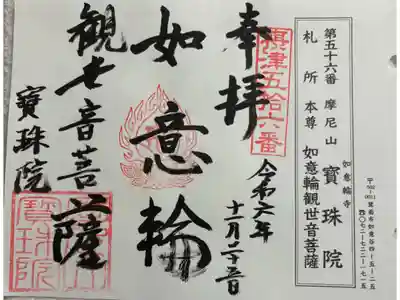 如意輪寺
第五十六番 摩尼山 寶珠院
札所本尊 如意輪觀世音菩薩
摂津五拾六番
奉拝
令和六年
十一月二十
如意輪
観世音菩薩
寶珠院
寶珠院